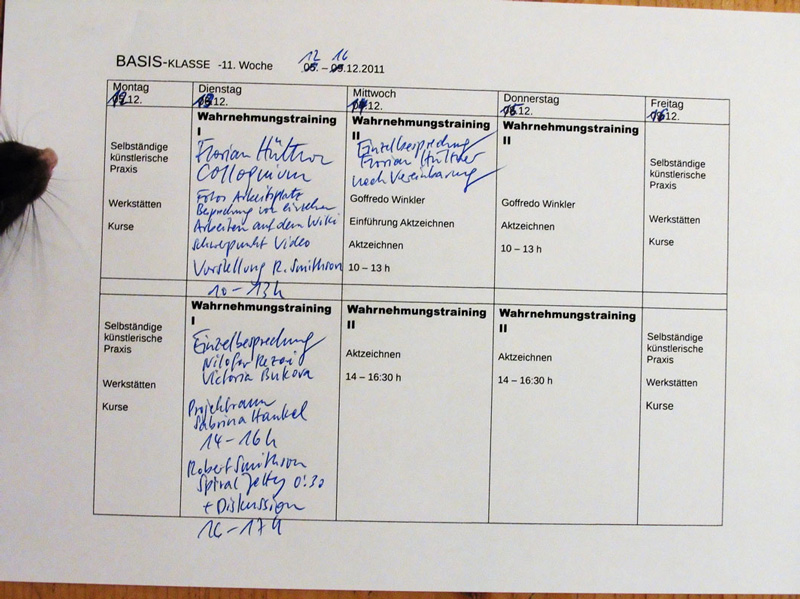 BASIS-KLASSE -11. Woche 12 16
05. – 09.12.2011
Montag
12.12.
Dienstag
13.12.
Mittwoch
14.12.
Donnerstag
15.12.
Freitag
16.12.
Selbständige
künstlerische
Praxis
Werkstätten
Kurse
Wahrnehmungstraining
I
Florian Hüttner
Colloquium
Fotos Arbeitsplatz
Besprechung von einzelnen
Arbeiten auf dem Wiki
Schwerpunkt Video
Vorstellung R. Smithson
10 – 13h
Wahrnehmungstraining
II
Einzelbesprechung
Florian Hüttner
nach Vereinbarung
Goffredo Winkler
Einführung Aktzeichnen
Aktzeichnen
10 – 13 h
Wahrnehmungstraining
II
Goffredo Winkler
Aktzeichnen
10 – 13 h
Selbständige
künstlerische
Praxis
Werkstätten
Kurse
Selbständige
künstlerische
Praxis
Werkstätten
Kurse
Wahrnehmungstraining
I
Einzelbesprechung
Nilofar Rezai
Victoria Bukova
Projektraum
Sabrina Hankel
14 – 16h
Robert Smithson
Spiral Jetty 0:30
+ Diskussion
16 – 17h
Wahrnehmungstraining
II
Aktzeichnen
14 – 16:30 h
Wahrnehmungstraining
II
Aktzeichnen
14 – 16:30 h
Selbständige
künstlerische
Praxis
Werkstätten
Kurse